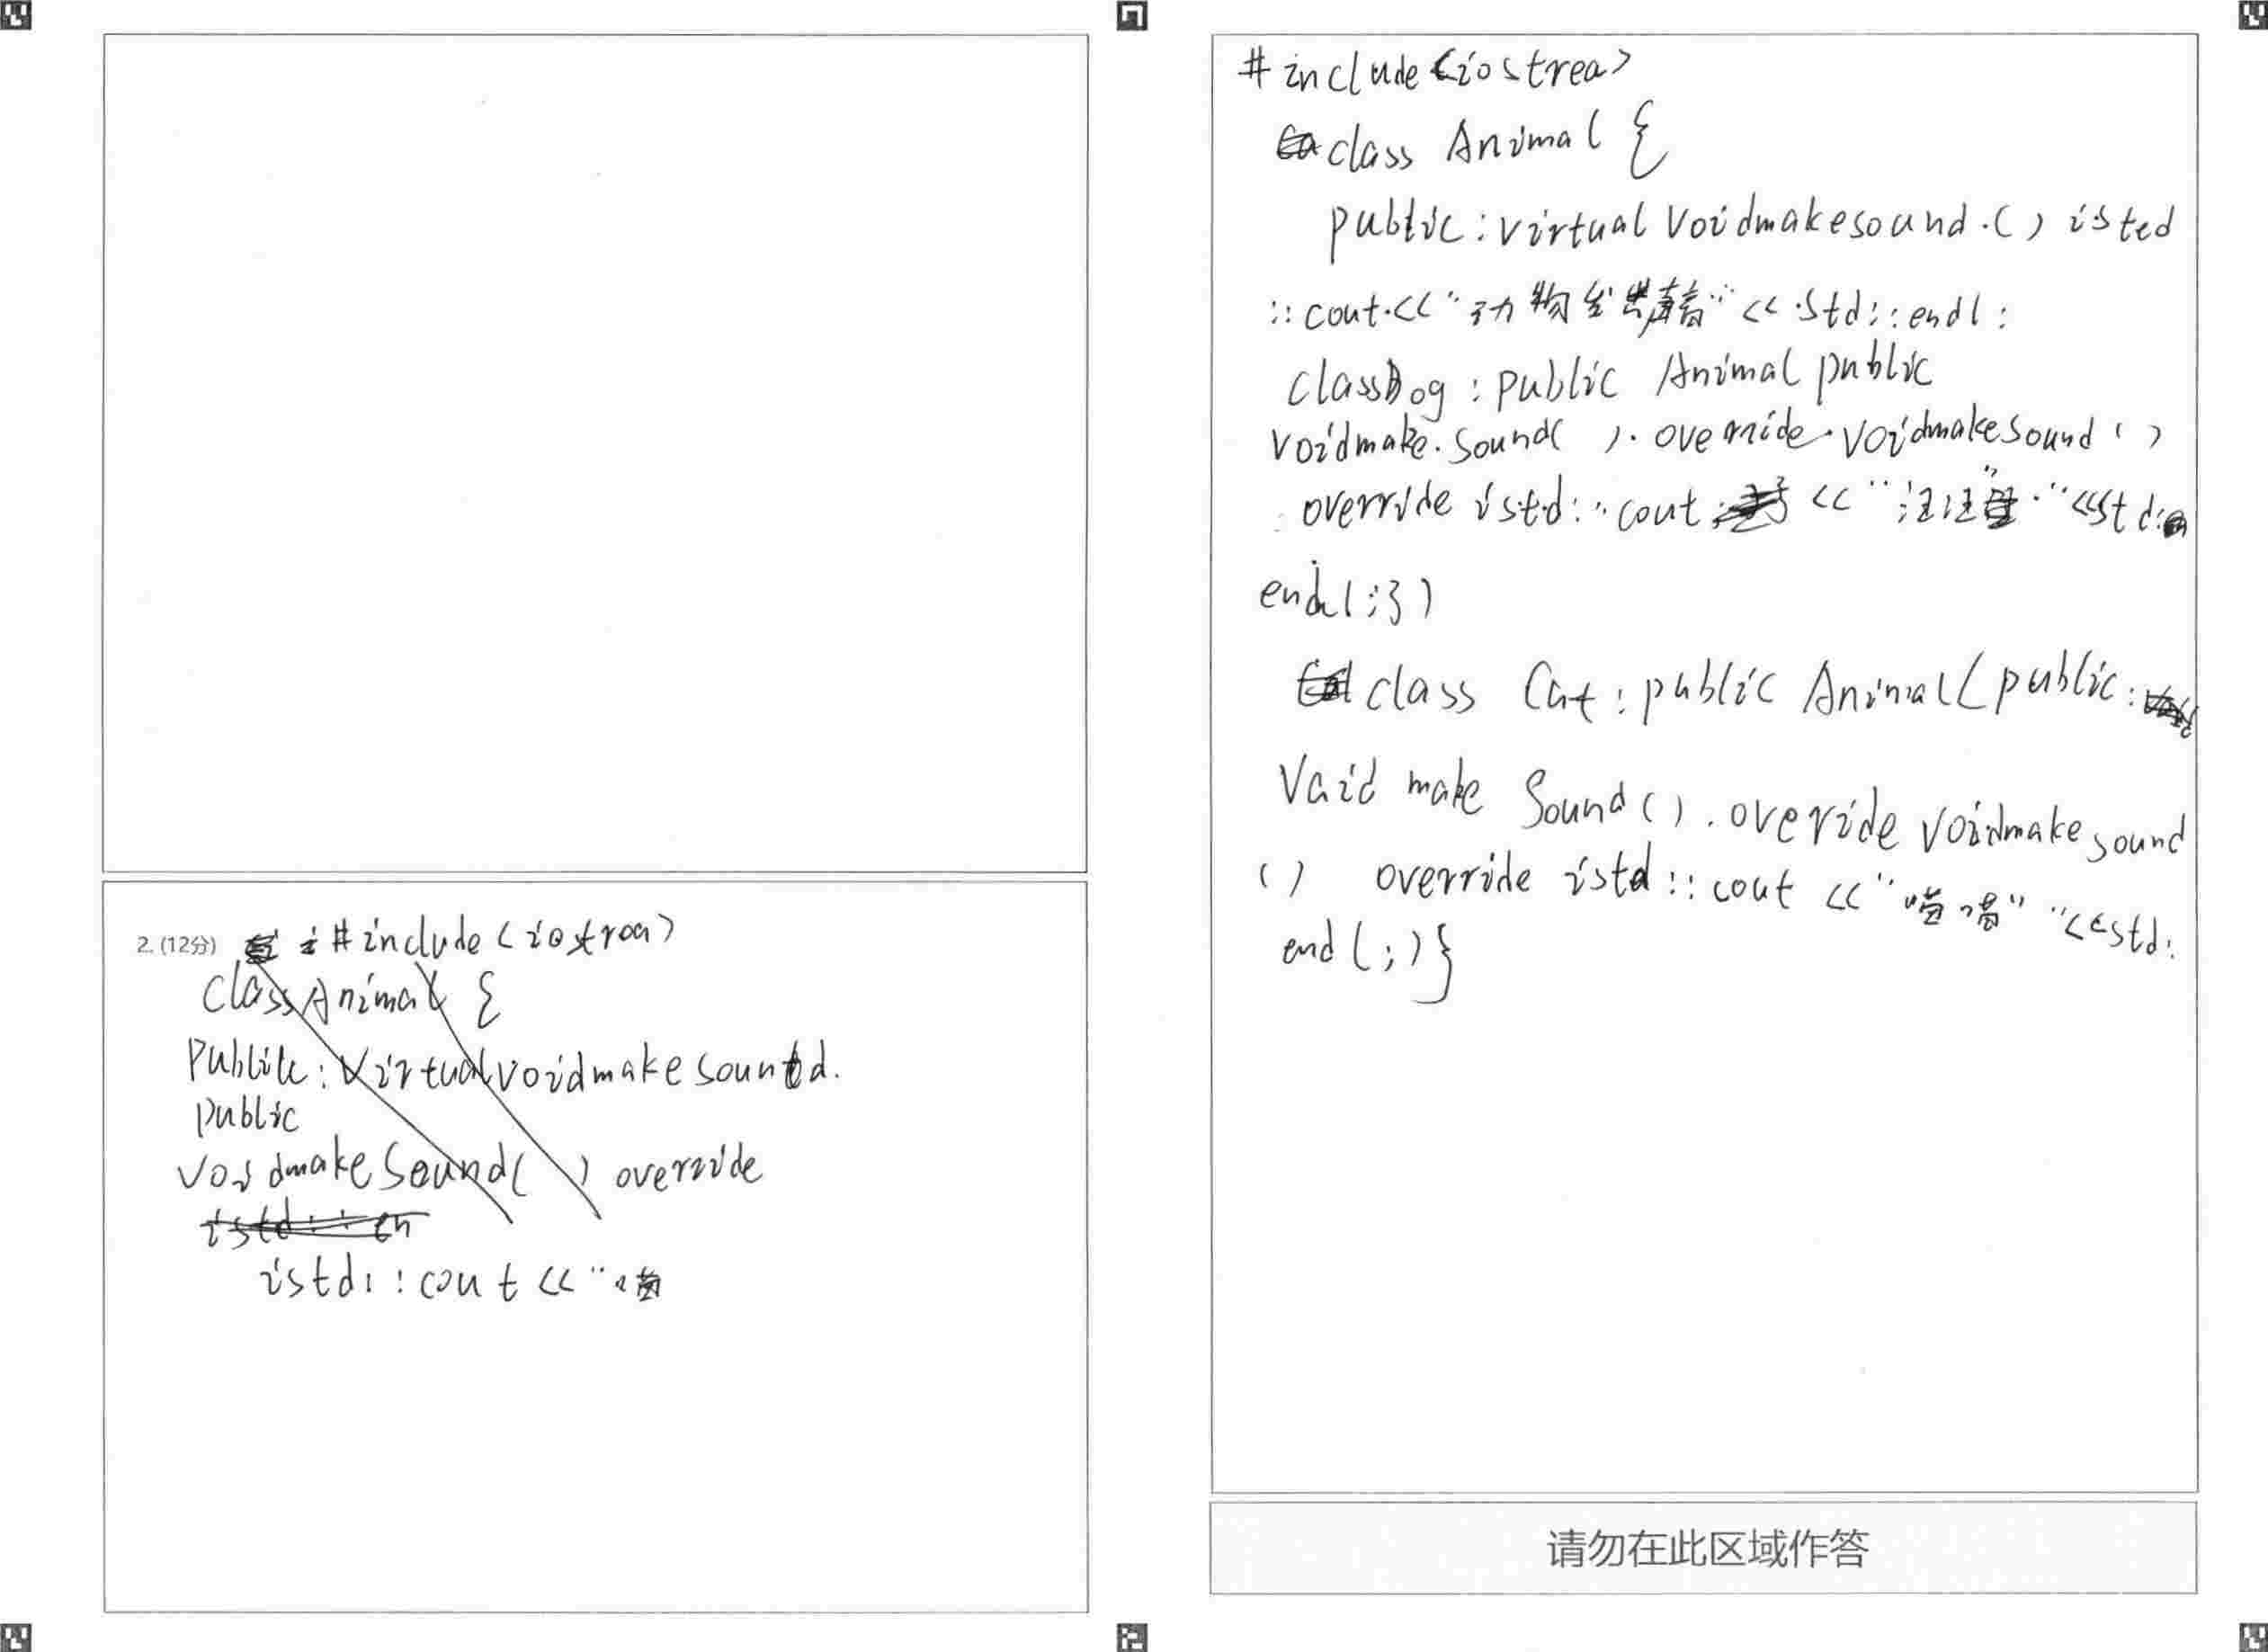 2. (12分) #include<iostrea>
class Animal {
Public: Virtual voidmakesound.
public
voidmakeSound( ) override
istd::cout << "喵
#include<iostrea>
class Animal {
public:virtual Voidmakesound.() isted
::cout.<< "动物发出声音" << std::endl:
classDog : public Animal public
voidmake.Sound( ). override. voidmakeSound ( )
override istd::cout << "汪汪" <<std:
endl;})
class Cat : public Animal( public:
Void make Sound(). override voidmakesound
() override istd::cout << "喵喵" "<<std:
end(;)}
请勿在此区域作答